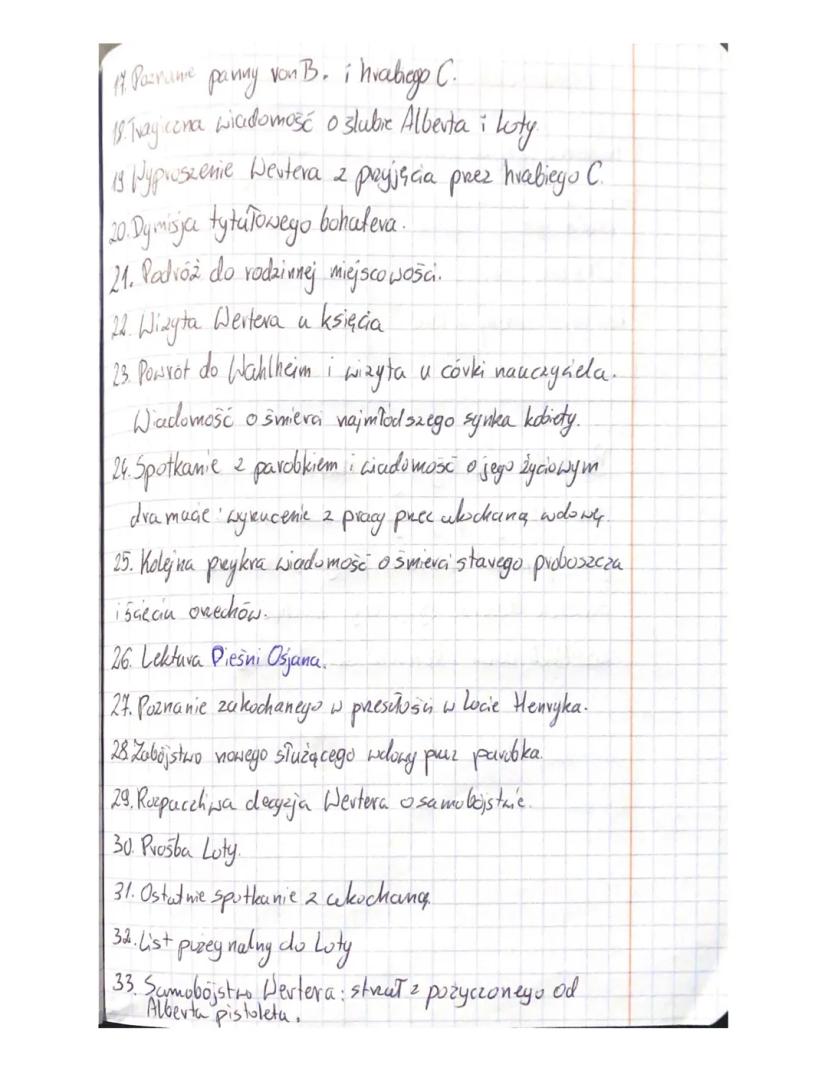 17. Poznanie panny von B. i hrabiego C.
18. Tragiczna wiadomość o ślubie Alberta i Loty
19 Wyproszenie Wertera z przyjęcia przez hrabiego C.
20. Dymisja tytułowego bohatera.
21. Podróż do rodzinnej miejscowości.
22. Wizyta Wertera u księcia
23. Powrót do Wahlheim i wizyta u córki nauczyciela.
Wiadomość o śmierci najmłodszego synka kobiety.
24. Spotkanie z parobkiem i wiadomość o jego życiowym
dramacie: wyrzucenie z pracy przez ukochaną wdowę.
25. Kolejna przykra wiadomość o śmierci starego proboszcza
i ścięciu orzechów.
26. Lektura Pieśni Osjana.
27. Poznanie zakochanego w przeszłości w Locie Henryka.
28. Zabójstwo nowego służącego wdowy przez parobka.
29. Rozpaczliwa decyzja Wertera o samobójstwie.
30. Prośba Loty.
31. Ostatnie spotkanie z ukochaną.
32. List pożegnalny do Loty
33. Samobójstwo Wertera: strzał z pożyczonego od
Alberta pistoletu.